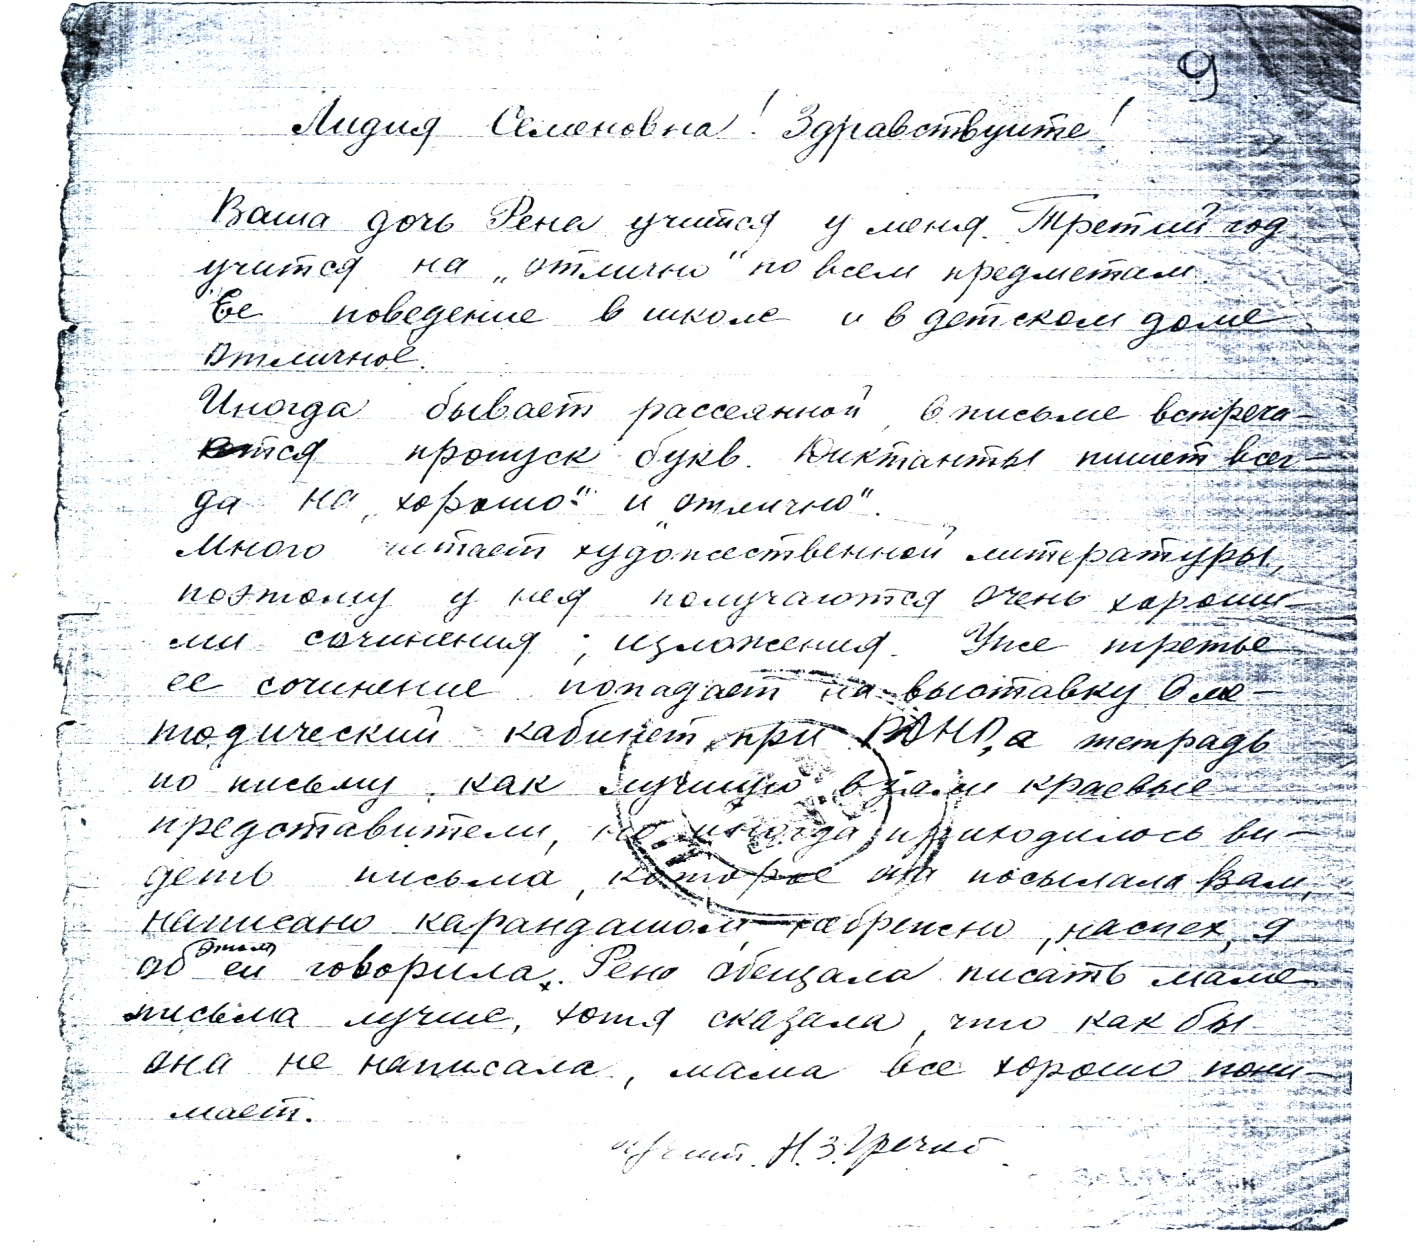 9
Лидия Семеновна! Здравствуите!
Ваша дочь Рена учится у меня. Третий год
учится на „отлично" по всем предметам.
Ее поведение в школе и в детском доме
отличное.
Иногда бывает рассеянной, в письме встреча-
ются пропуск букв. Диктанты пишет всег-
да на „хорошо" и „отлично".
Много читает художественной литературы,
поэтому у нея получаются очень хороши-
ми сочинения, изложения. Уже третье
ее сочинение попадает на выставку в ме-
тодический кабинет при РОНО, а тетрадь
по письму, как лучшую взяли краевые
представители, но иногда приходилось ви-
деть письма, которые она посылала Вам,
написано карандашом, небрежно, наспех, я
об этом ей говорила. Рена обещала писать маме
письма лучше, хотя сказала, что как бы
она не написала, мама все хорошо пони-
мает.
Н. З. Гречко.